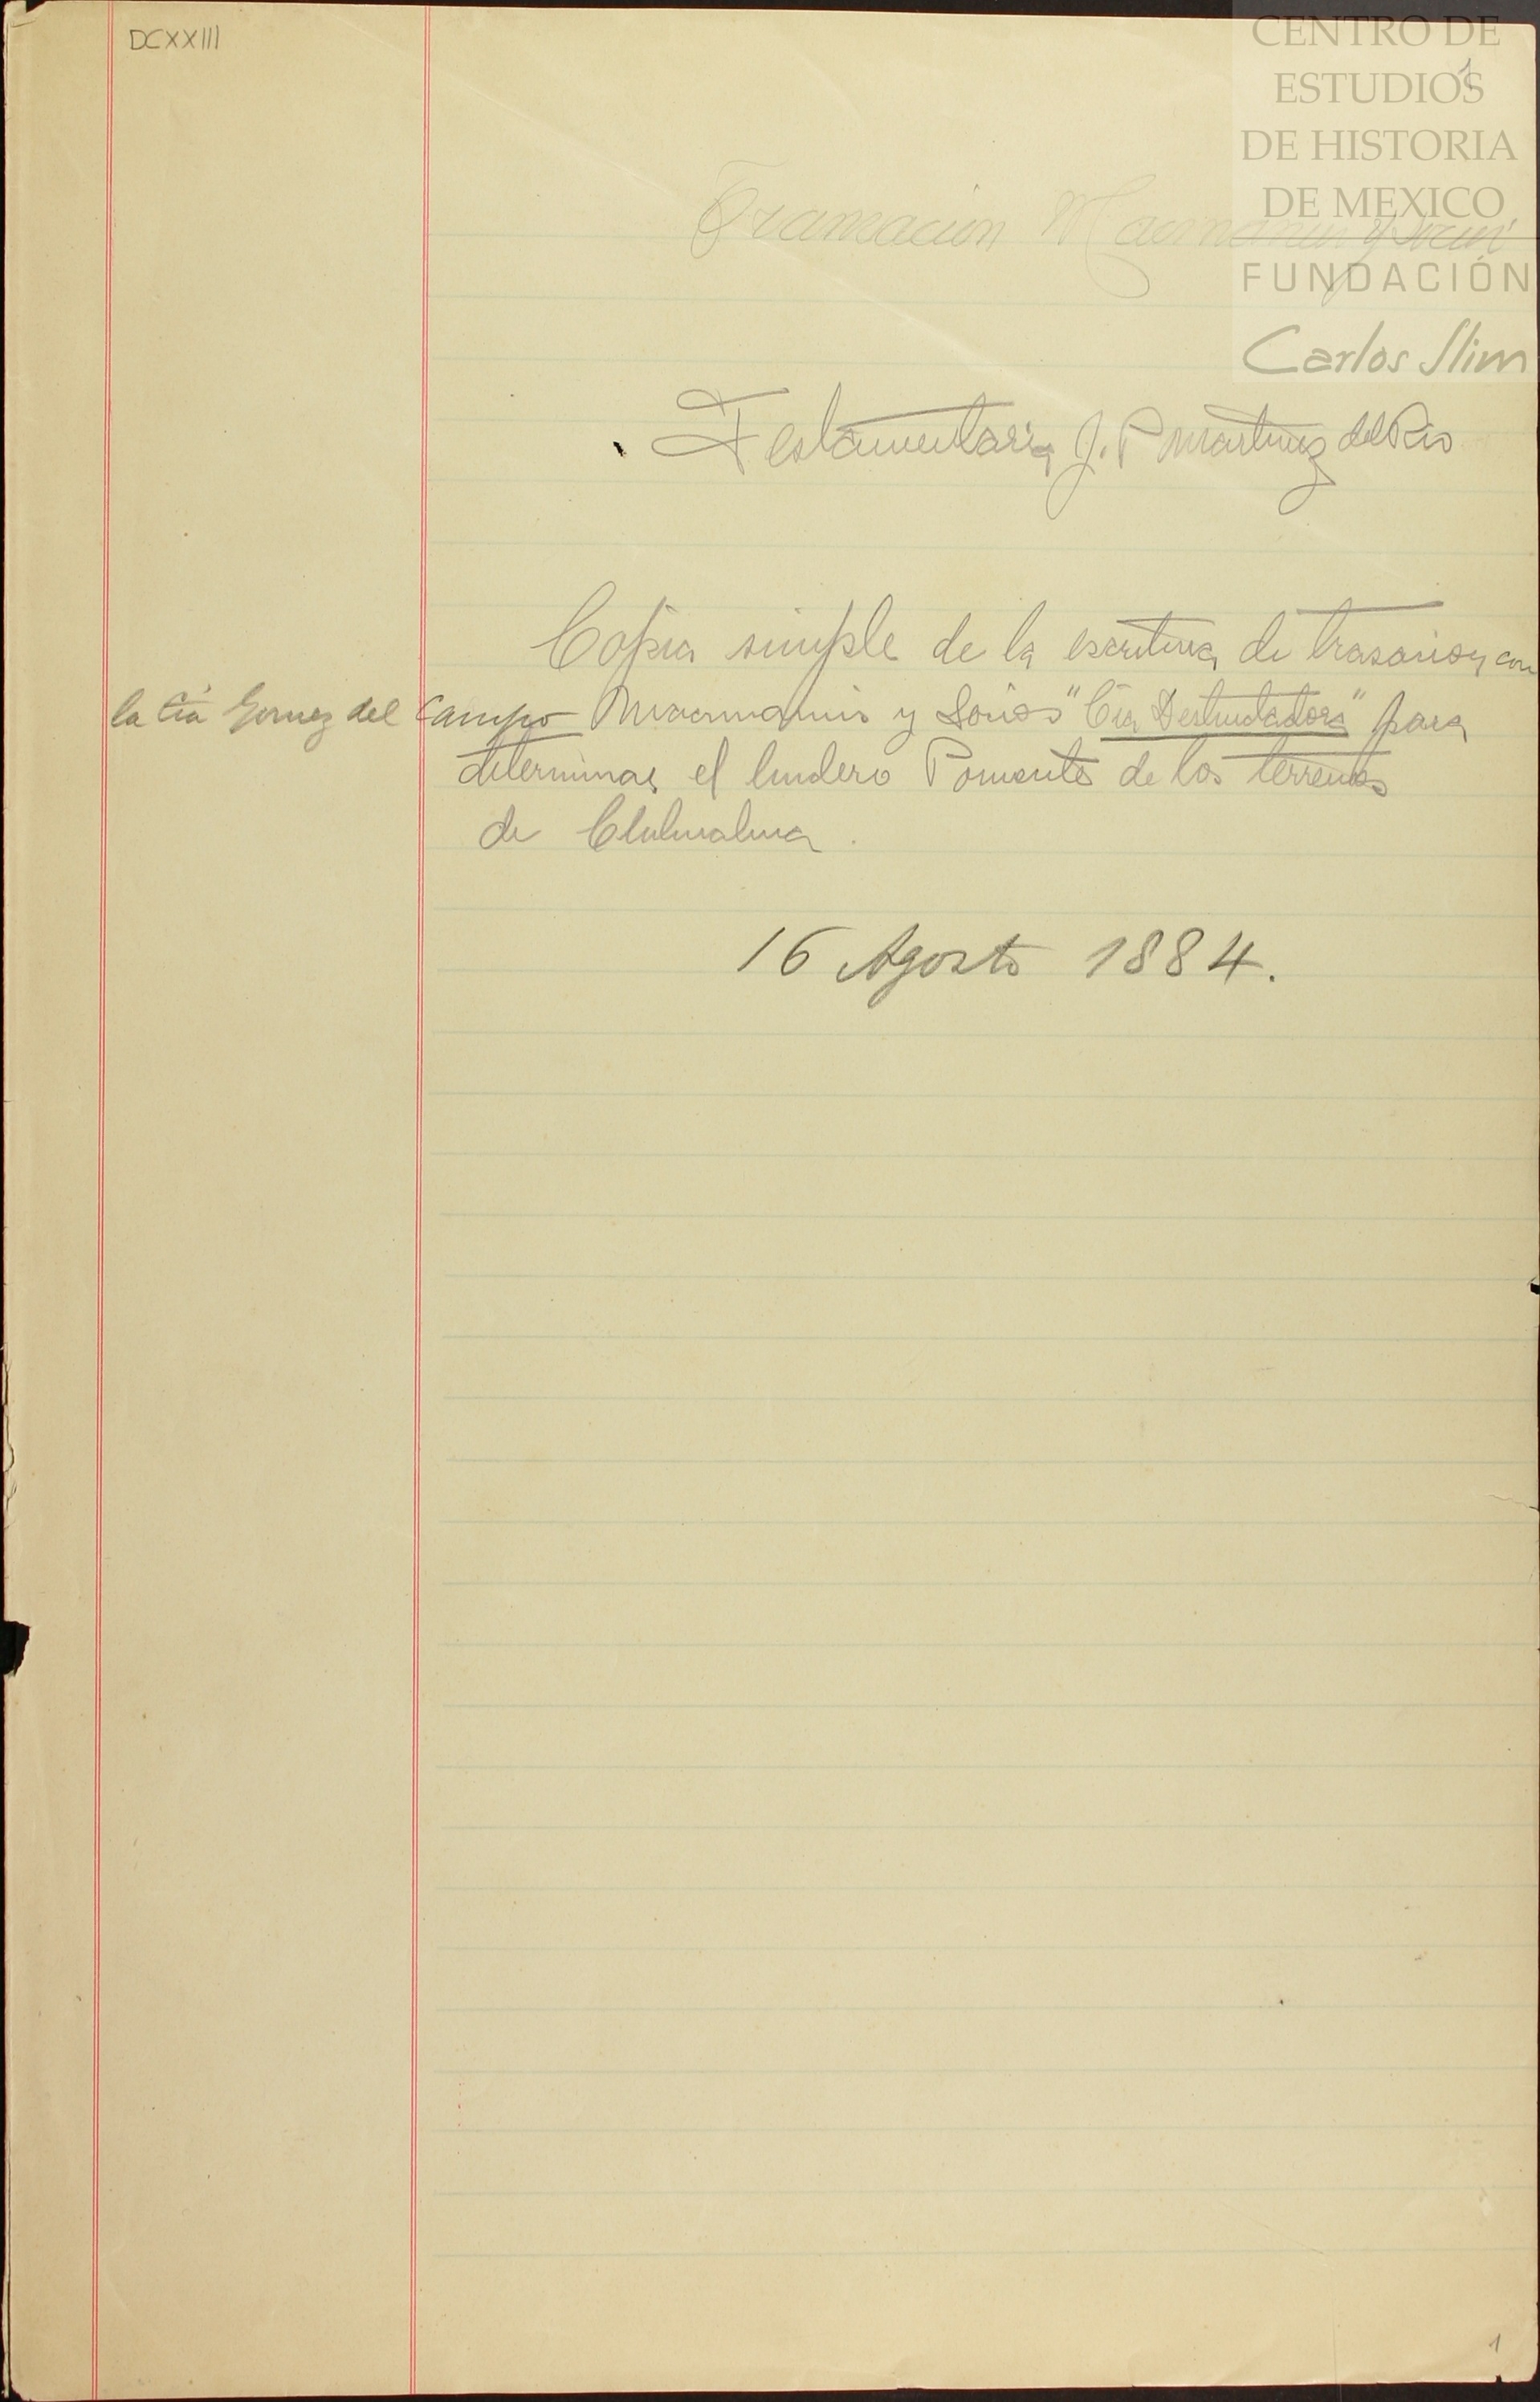 DCXXIII
CENTRO DE
ESTUDIOS
DE HISTORIA
DE MEXICO
FUNDACIÓN
Carlos Slim
1
Testamentaria J. P Martinez del Rio
Copia simple de la escritura de con
la Cia Gomez del Campo y Socios "Cia Deslindadora" para
determinar el lindero Poniente de los terrenos
de Chihuahua.
16 Agosto 1884.
1